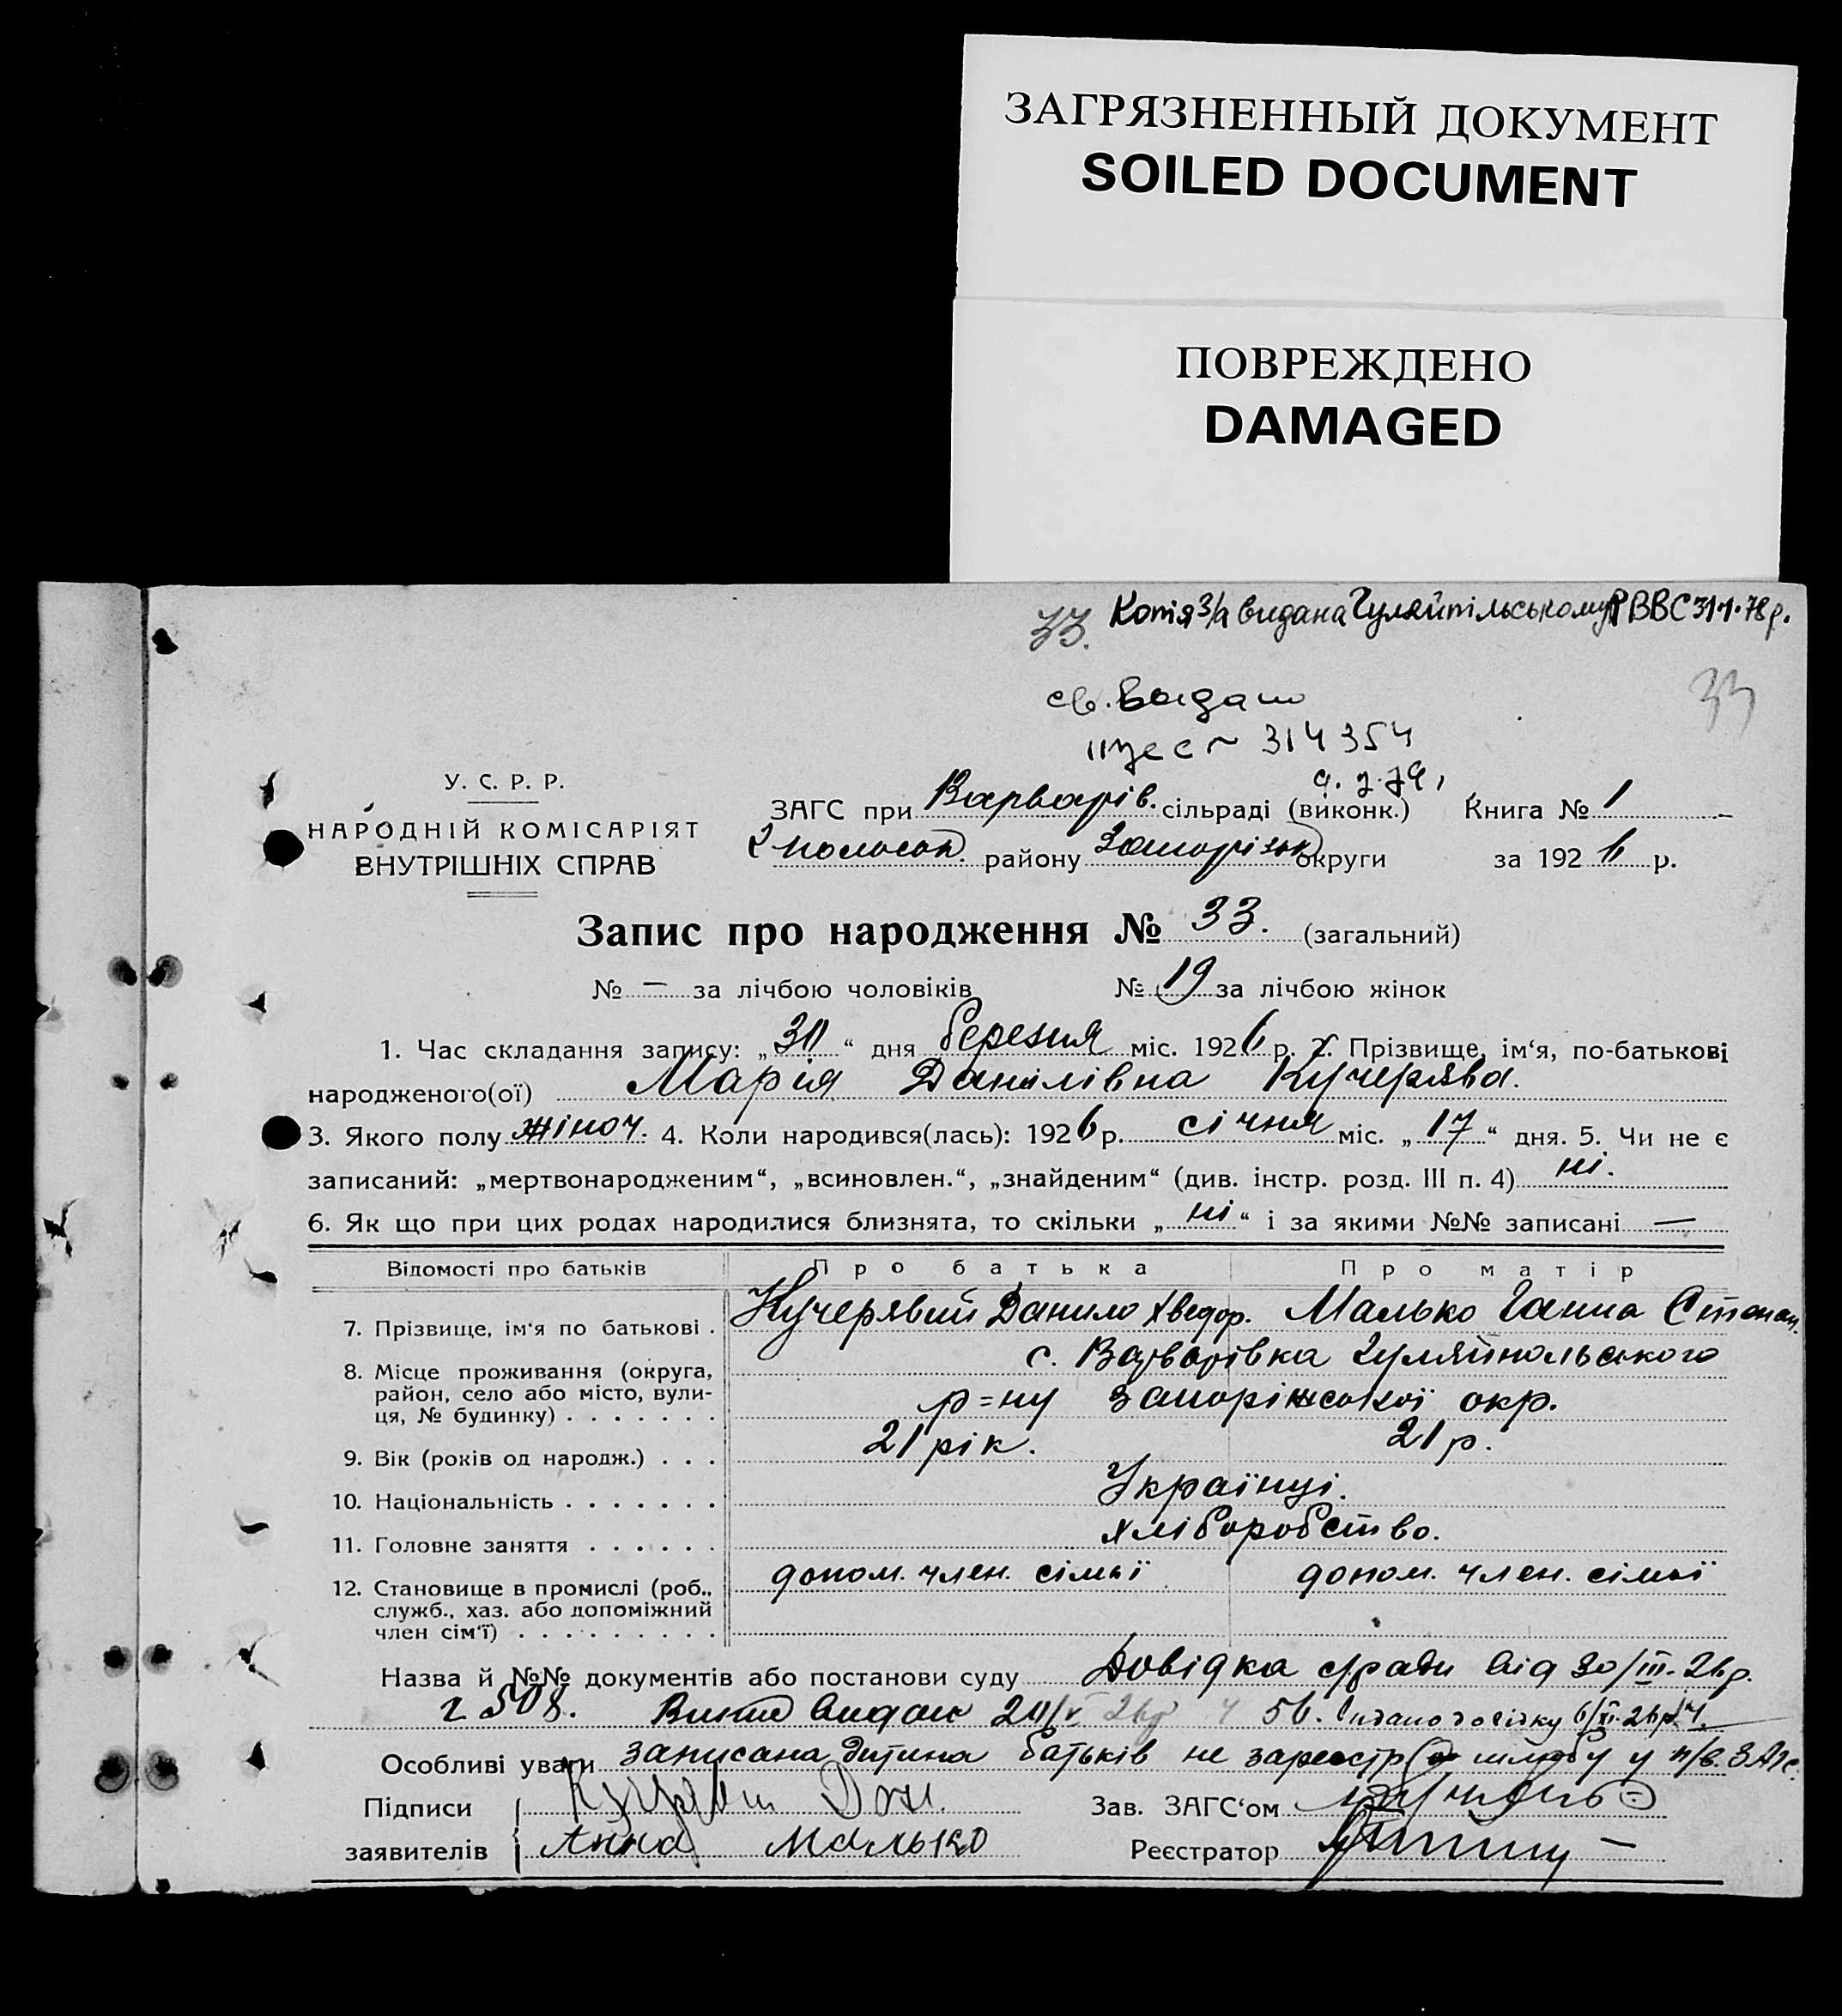 ЗАГРЯЗНЕННЫЙ ДОКУМЕНТ
SOILED DOCUMENT
ПОВРЕЖДЕНО
DAMAGED
33. Копія З/А видана Гуляйпільському РВВС 31.1.78 р.
33
св. выдано
314354
У. С. Р. Р.
НАРОДНІЙ КОМІСАРІЯТ
ВНУТРІШНІХ СПРАВ
ЗАГС при Варварів. сільраді (виконк.) Книга № 1
району Запорізьк округи за 1926 р.
Запис про народження № 33. (загальний)
№ — за лічбою чоловіків № 19 за лічбою жінок
1. Час складання запису: „30“ дня березня міс. 1926 р. 2. Прізвище, ім‘я, по-батькові
народженого(ої) Марія Данилівна Кучерява.
3. Якого полу жіноч. 4. Коли народився(лась): 1926 р. січня міс. „17“ дня. 5. Чи не є
записаний: „мертвонародженим“, „всиновлен.“, „знайденим“ (див. інстр. розд. III п. 4) ні.
6. Як що при цих родах народилися близнята, то скільки „ні“ і за якими №№ записані —
Відомості про батьків Про батька Про матір
7. Прізвище, ім‘я по батькові . Кучерявий Данило Хведор. Малько Ганна Степан.
8. Місце проживання (округа, район, село або місто, вулиця, № будинку) . . . . . . . с. Варварівка Гуляйпольського
р=ну Запоріжської окр.
9. Вік (років од народж.) . . . 21 рік. 21 р.
10. Національність . . . . . . . Українці.
11. Головне заняття . . . . . . хліборобство.
12. Становище в промислі (роб., служб., хаз. або допоміжний член сім‘ї) . . . . . . . . . допом. член. сімьї допом. член. сімьї
Назва й №№ документів або постанови суду Довідка с/ради від 30/III-26 р.
508. Витяг видано 56. 6/XI-26 р.
Особливі уваги записана дитина батьків не зареєстр шлюбу у н/в. ЗАГС.
Підписи Зав. ЗАГС‘ом
заявителів Анна Малько Реєстратор